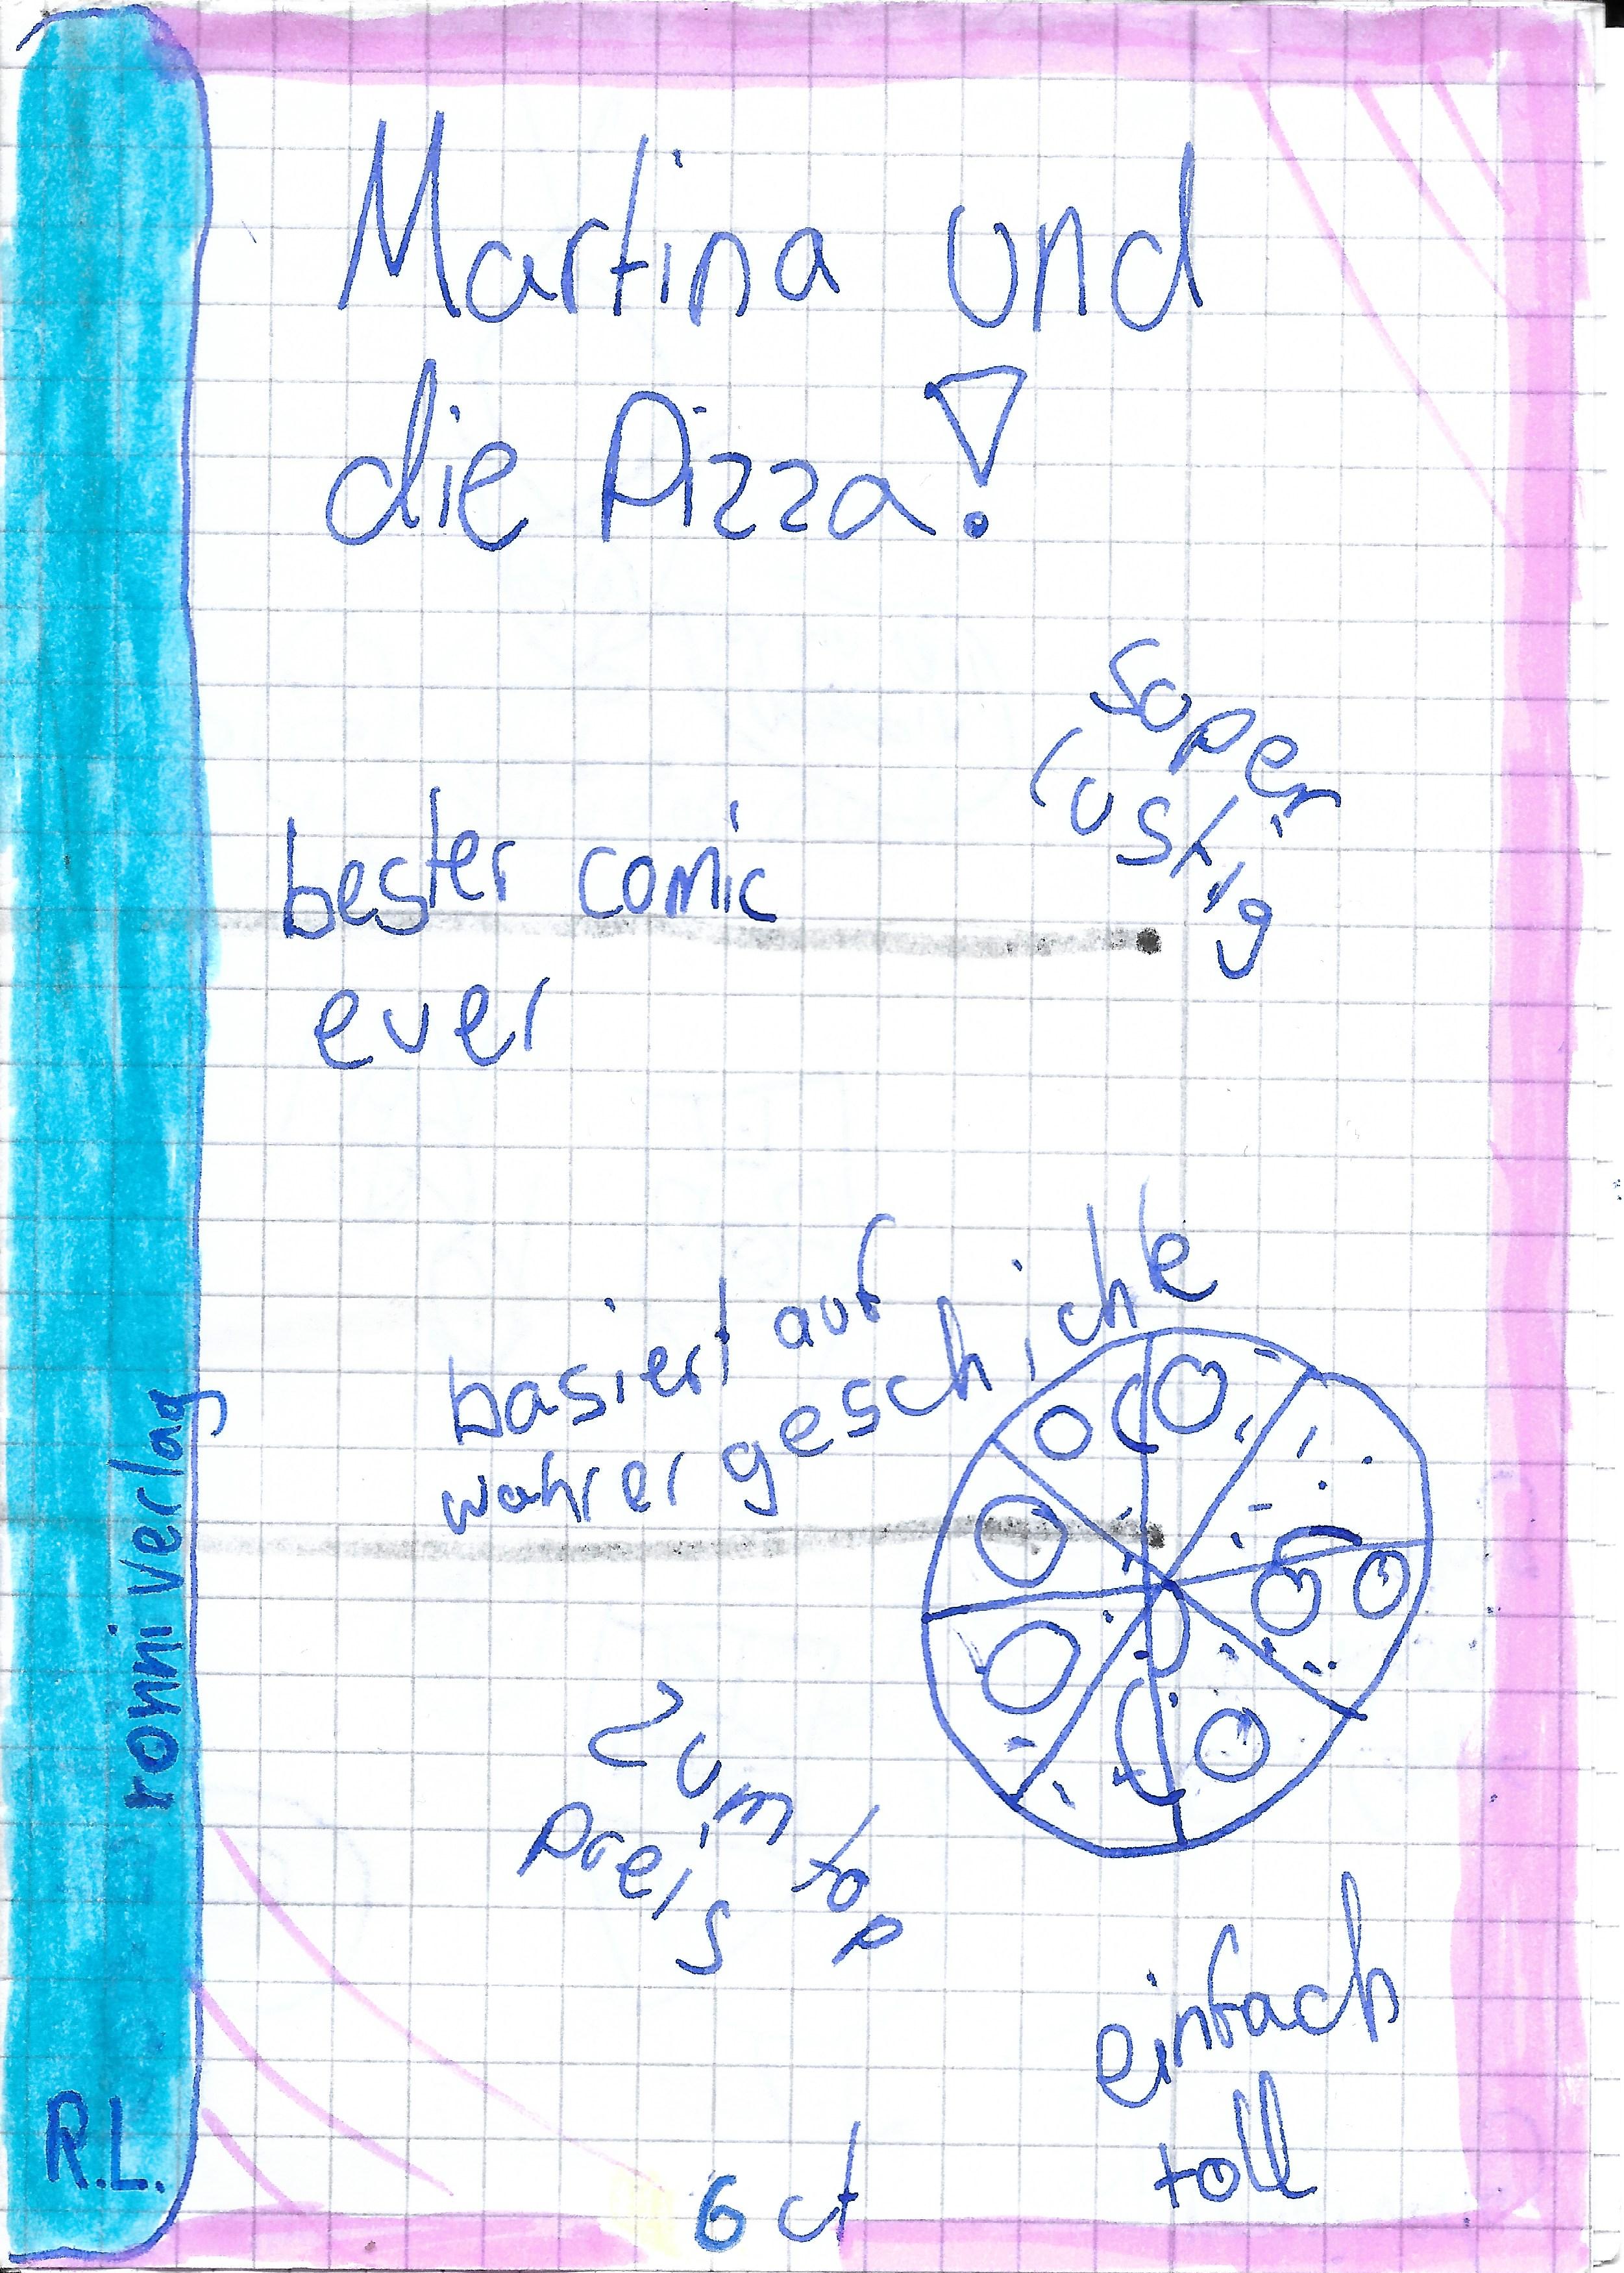 Martina und
die Pizza!
super
lustig
bester comic
ever
basiert auf
wahrer geschichte
zum top
Preis
einfach
toll
6 ct
ronni verlag
R.L.